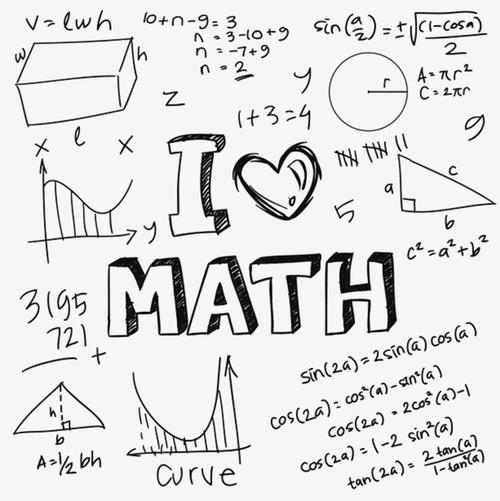 V = lwh
w
h
l
10+n-9 = 3
n = 3-10+9
n = -7+9
n = 2
z
y
1+3=4
sin(a/2) = ±√((1-cosa)/2)
r
A = πr²
C = 2πr
9
x
x
y
I
5
a
c
b
c² = a² + b²
MATH
3195
721
+
h
b
A = 1/2 bh
curve
sin(2a) = 2 sin(a) cos(a)
cos(2a) = cos²(a) - sin²(a)
cos(2a) = 2cos²(a)-1
cos(2a) = 1-2 sin²(a)
tan(2a) = 2 tan(a)/1-tan²(a)